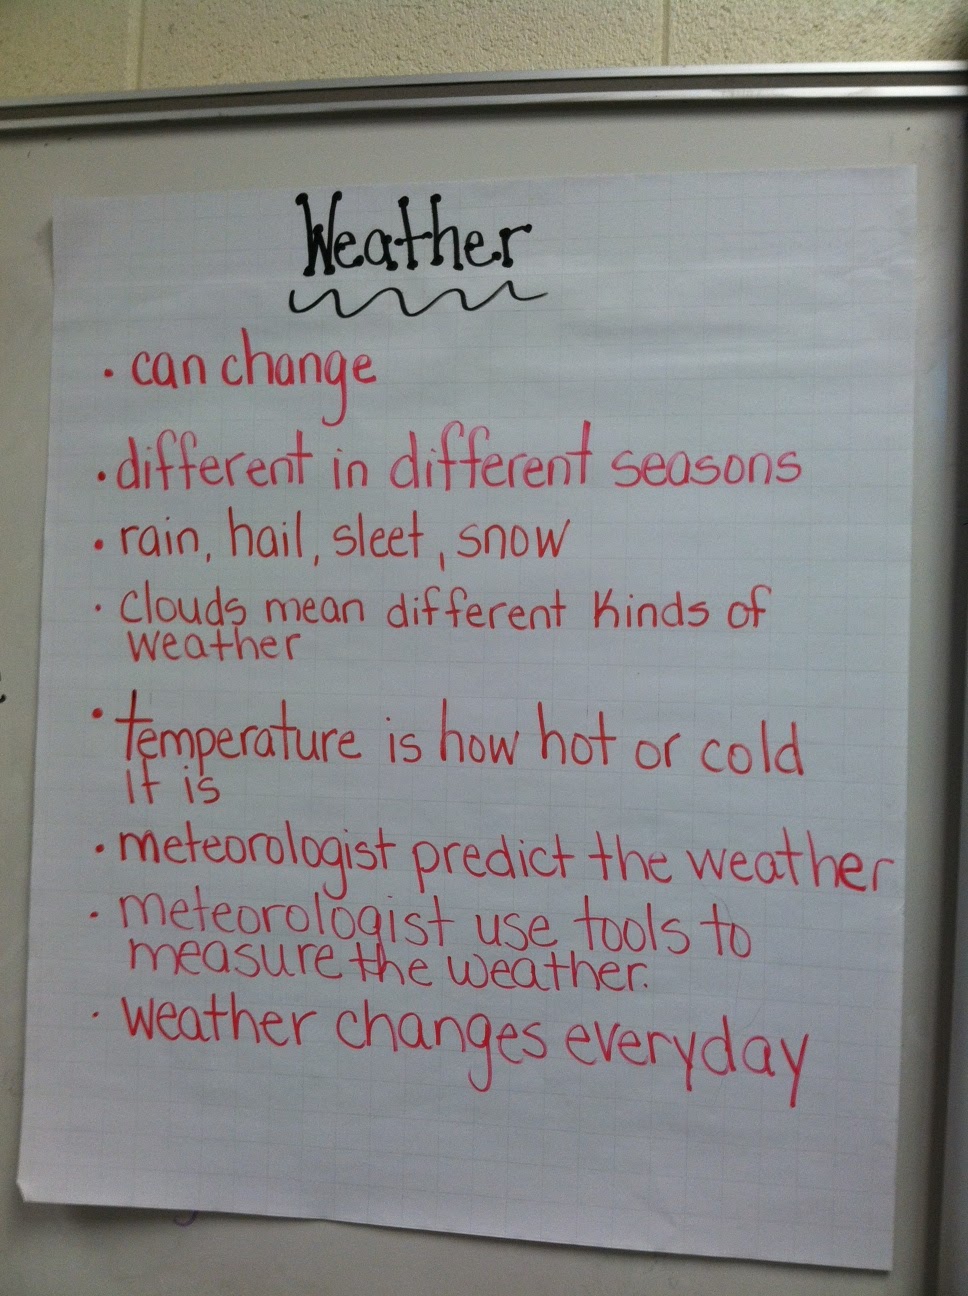 Weather
• can change
• different in different seasons
• rain, hail, sleet, snow
• clouds mean different kinds of
weather
• temperature is how hot or cold
it is
• meteorologist predict the weather
• meteorologist use tools to
measure the weather.
• weather changes everyday